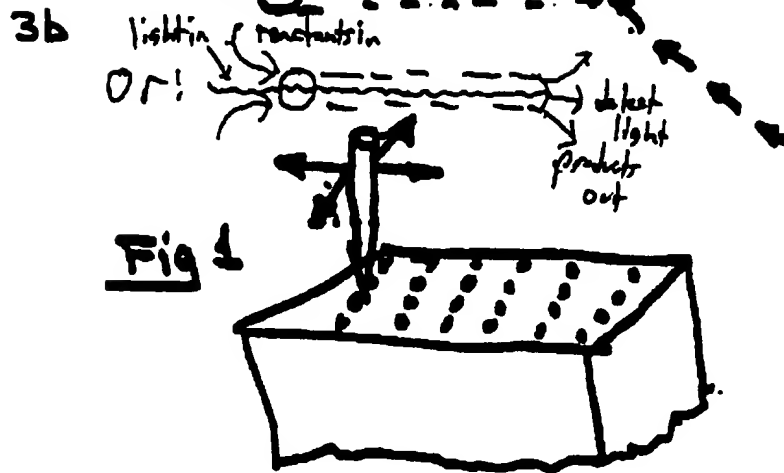 3b
light in & reactants in
Or!
detect
light
products
out
Fig 1